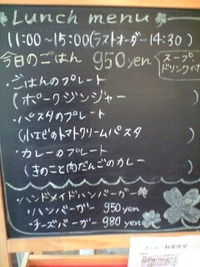 Lunch menu
11:00～15:00(ラストオーダー14:30)
今日のごはん 950yen
スープ
ドリンク付
・ごはんのプレート
(ポークジンジャー)
・パスタのプレート
(小エビのトマトクリームパスタ)
・カレーのプレート
(きのこと肉だんごのカレー)
ハンドメイドハンバーガー
・ハンバーガー 950yen
・チーズバーガー 980yen